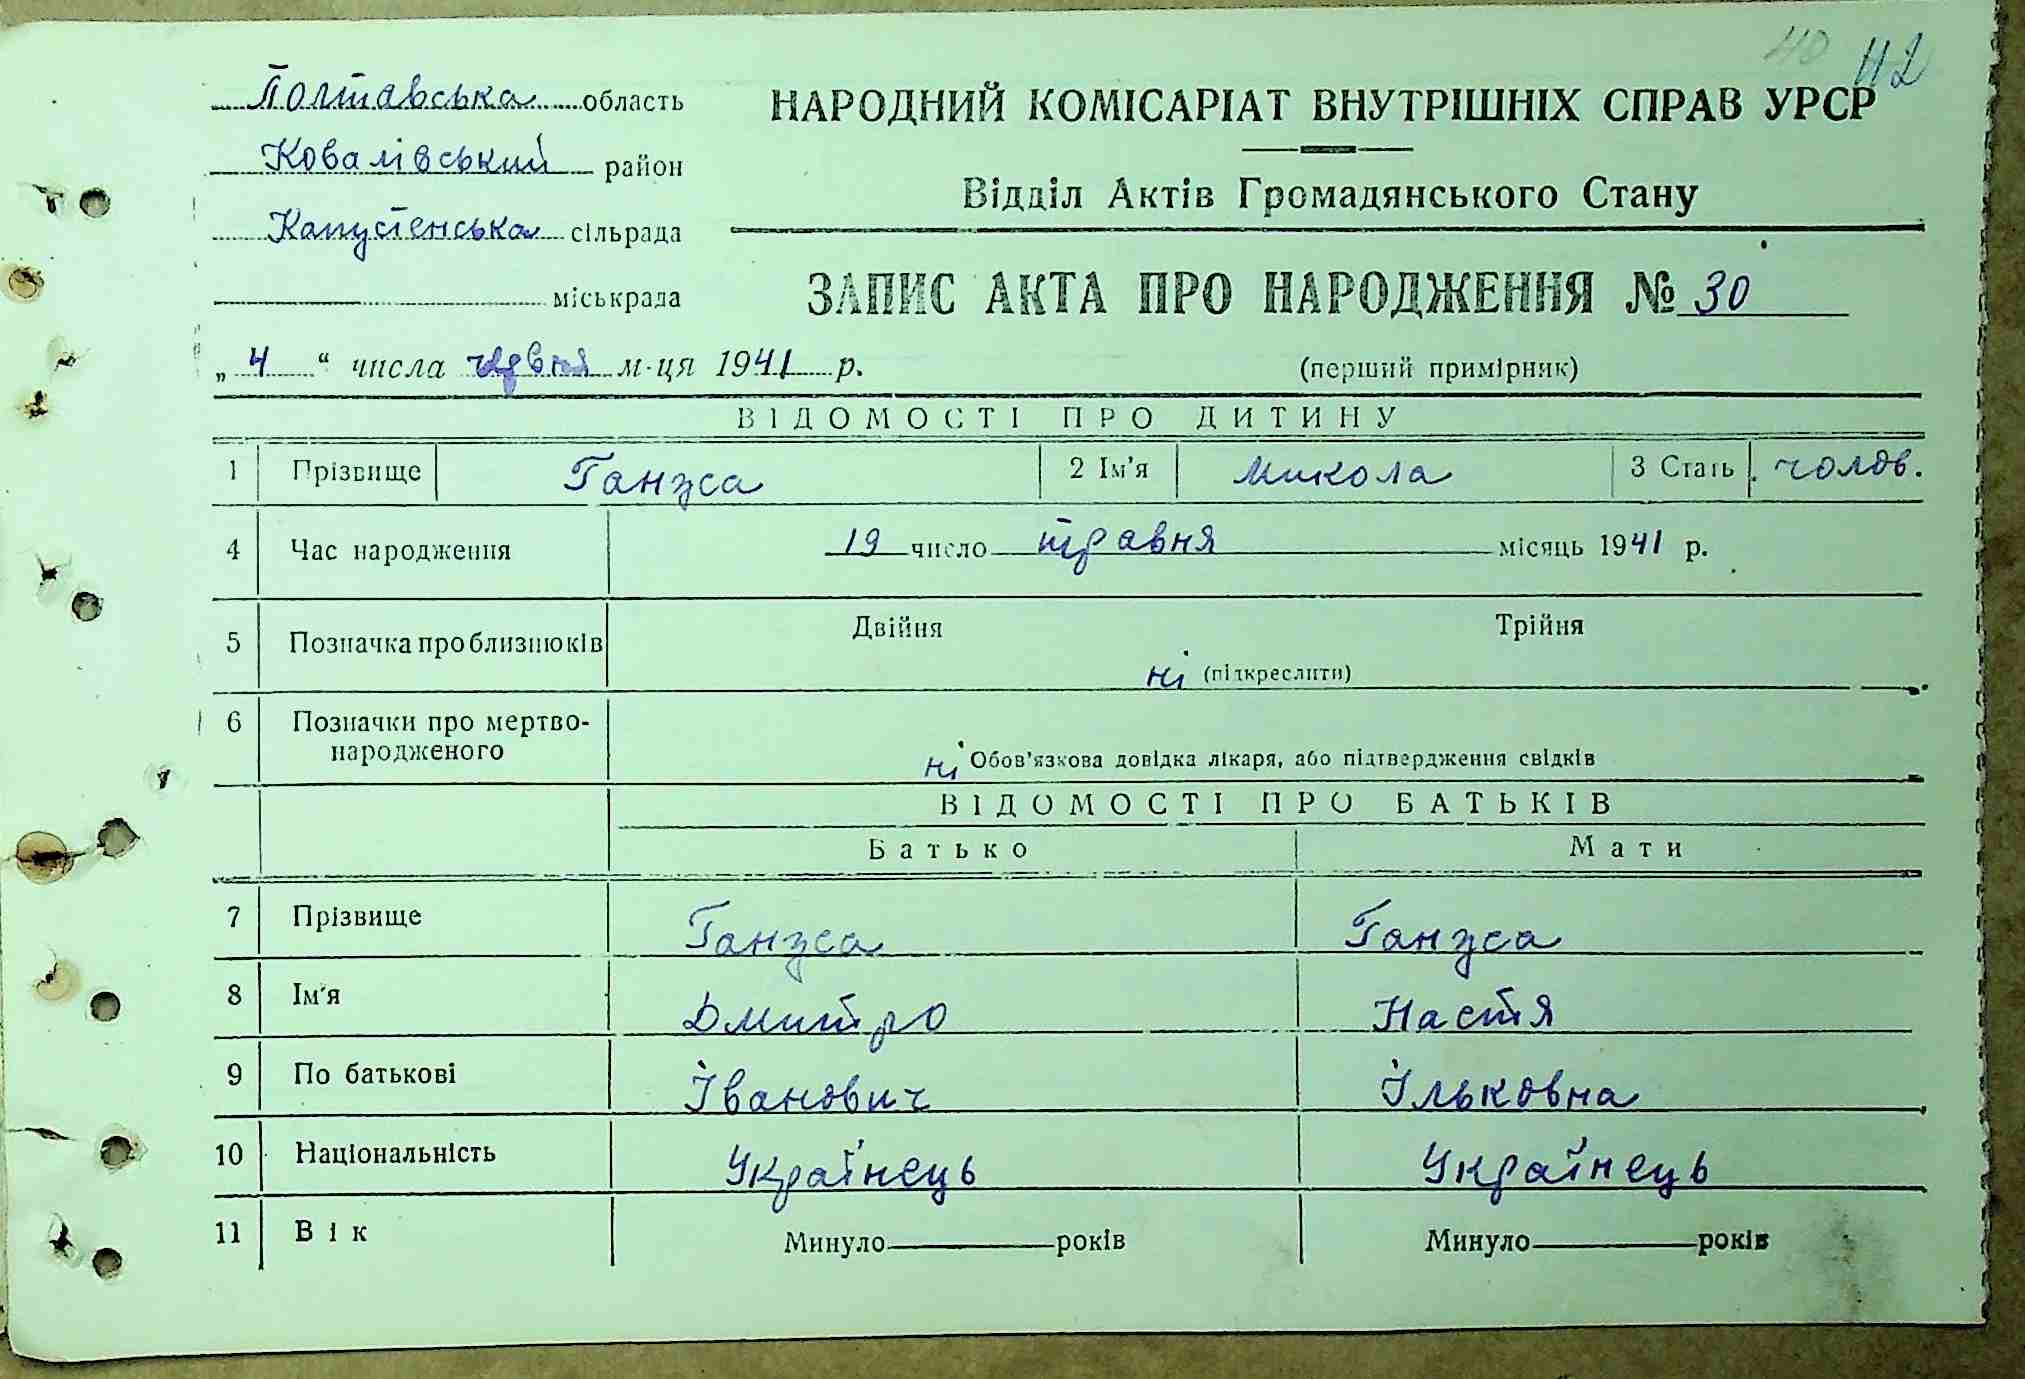 40 42
Полтавська область
НАРОДНИЙ КОМІСАРІАТ ВНУТРІШНІХ СПРАВ УРСР
Ковалівський район
Відділ Актів Громадянського Стану
Капустенська сільрада
міськрада
ЗАПИС АКТА ПРО НАРОДЖЕННЯ № 30
„ 4 “ числа червня м-ця 1941 р.
(перший примірник)
ВІДОМОСТІ ПРО ДИТИНУ
1 Прізвище Гануса 2 Ім’я Микола 3 Стать чолов.
4 Час народження 19 число травня місяць 1941 р.
5 Позначка про близнюків Двійня Трійня
ні (підкреслити)
6 Позначки про мертво-
народженого
ні Обов’язкова довідка лікаря, або підтвердження свідків
ВІДОМОСТІ ПРО БАТЬКІВ
Батько Мати
7 Прізвище Гануса Гануса
8 Ім’я Дмитро Настя
9 По батькові Іванович Ільковна
10 Національність Українець Українець
11 Вік Минуло років Минуло років